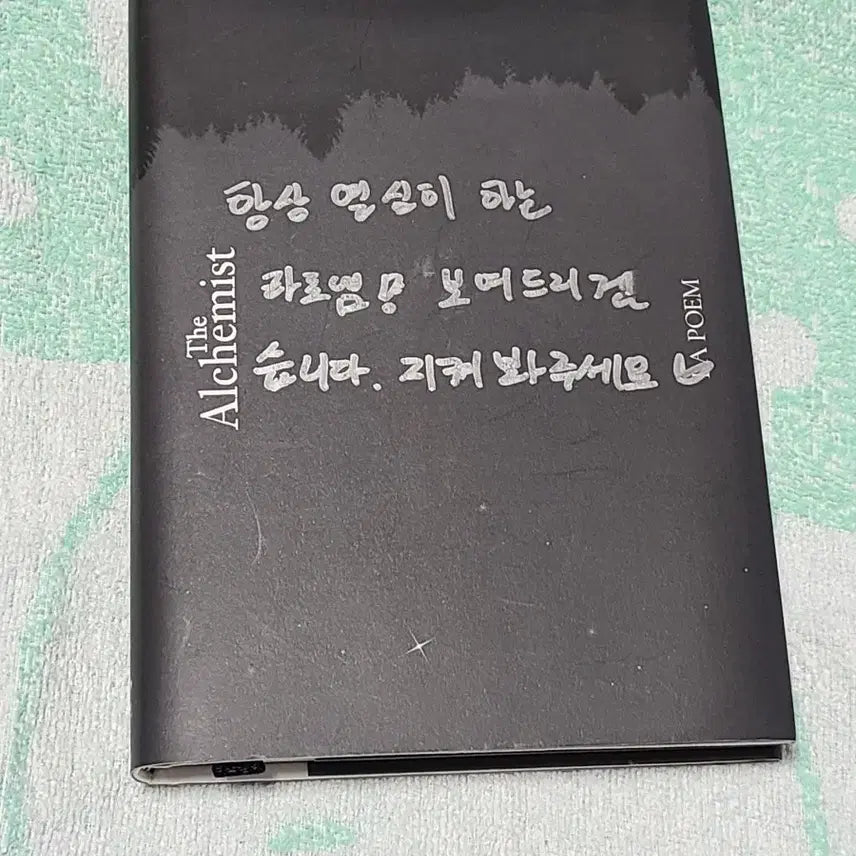 항상 열심히 하는
라포엠 보여드리겠
습니다. 지켜봐주세요
The
Alchemist
LA POEM